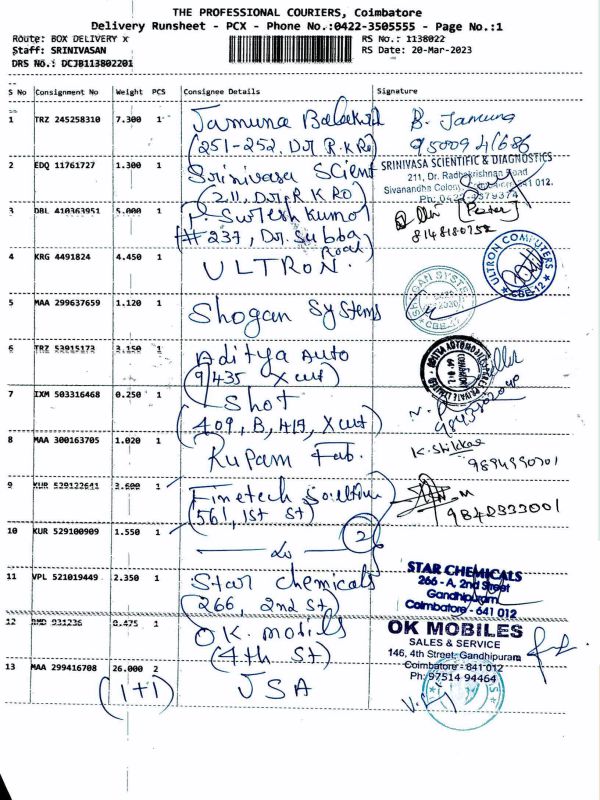 THE PROFESSIONAL COURIERS, Coimbatore
Delivery Runsheet - PCX - Phone No.:0422-3505555 - Page No.:1
Route: BOX DELIVERY x
RS No.: 1138022
Staff: SRINIVASAN
RS Date: 20-Mar-2023
DRS No.: DCJB113802201
S No Consignment No Weight PCS Consignee Details Signature
1 TRZ 245258310 7.300 1 Jamuna B. Jamuna
(251-252, Dr. R.K Ro) 95009 41686
2 EDQ 11761727 1.300 1 Srinivasa Scient SRINIVASA SCIENTIFIC & DIAGNOSTICS
(211, Dr. R K RO) 211, Dr. Radhakrishnan Road
Sivanandha Colony, 641 012.
Ph: 0422
3 DBL 410363951 5.000 1 P. Suresh Kumar
(# 237, Dr. Subba Road) 8148180752
4 KRG 4491824 4.450 1 ULTRON. ULTRON COMPUTERS CBE-12
5 MAA 299637659 1.120 1 Shogan Systems SHOGAN SYSTEMS CBE-12
6 TRZ 53915173 3.150 1 Aditya Auto
(9/435 X cut)
7 IXM 503316468 0.250 1 Shot
(409, B, H19, X cut) 9843502040
8 MAA 300163705 1.020 1 Rupam Fab.
9894990701
9 KUR 529122641 3.600 1 Finetech Solution
(561, 1st St) 9842333001
10 KUR 529100909 1.550 1 — do — (2)
11 VPL 521019449 2.350 1 Star Chemicals STAR CHEMICALS
(266, 2nd St) 266 - A, 2nd Street
Gandhipuram
Coimbatore - 641 012
12 BMD 931236 0.475 1 OK. mobils OK MOBILES
(4th St) SALES & SERVICE
146, 4th Street, Gandhipuram
Coimbatore - 641 012
Ph: 97514 94464
13 MAA 299416708 26.000 2 JSA
(1+1)